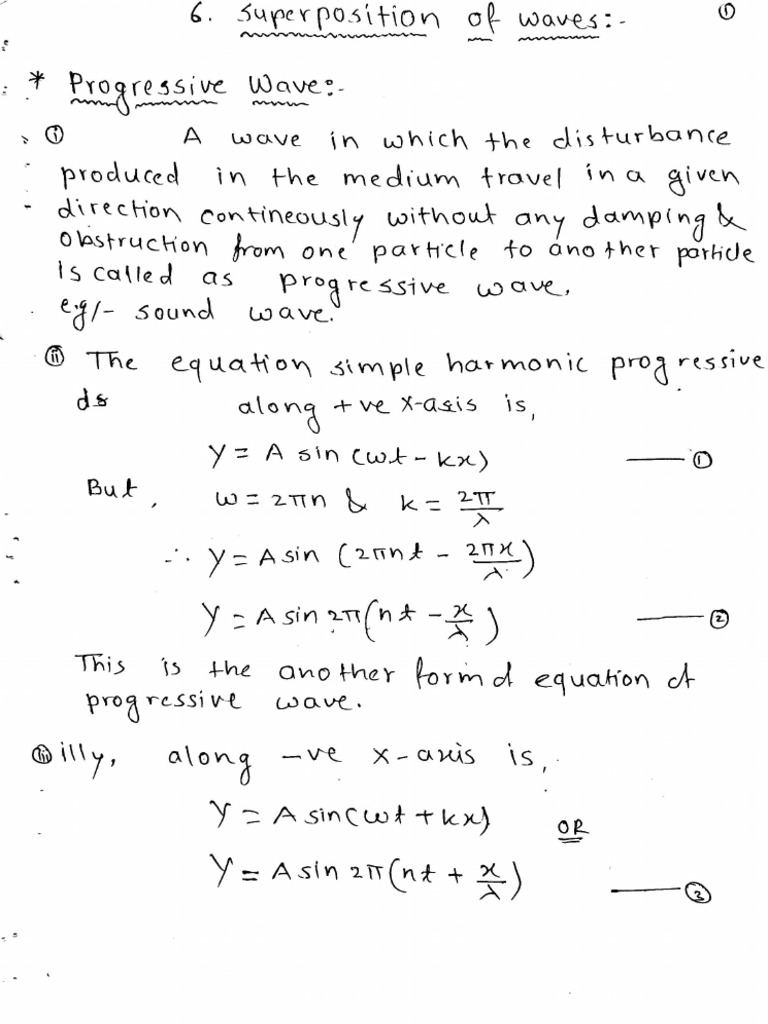 6. Superposition of waves:- ①
* Progressive Wave:-
① A wave in which the disturbance
produced in the medium travel in a given
direction contineously without any damping &
Obstruction from one particle to another particle
is called as progressive wave.
e.g/- sound wave.
ⓘⓘ The equation simple harmonic progressive
along +ve x-axis is,
y = A sin (wt - kx) —— ①
But, w = 2πn & k = 2π/λ
∴ y = A sin (2πnt - 2πx/λ)
y = A sin 2π(nt - x/λ) —— ②
This is the another form of equation of
progressive wave.
ⓘⓘⓘ illy, along -ve x-axis is,
y = A sin(wt + kx) OR
y = A sin 2π(nt + x/λ) —— ③